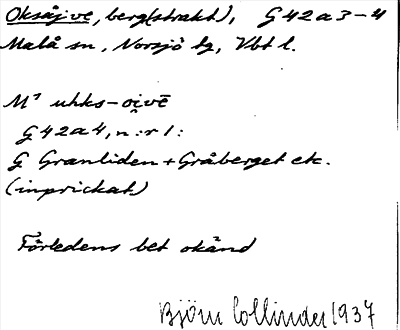 Oksåjve, berg(strakt), G 42 a 3-4
Malå sn, Norsjö tg, Vbt l.
M² uhks-oi̯vē
G 42 a 4, n :r 1:
G Granliden + Gråberget etc.
(inprickat)
Förledens bet okänd
Björn Collinder 1937